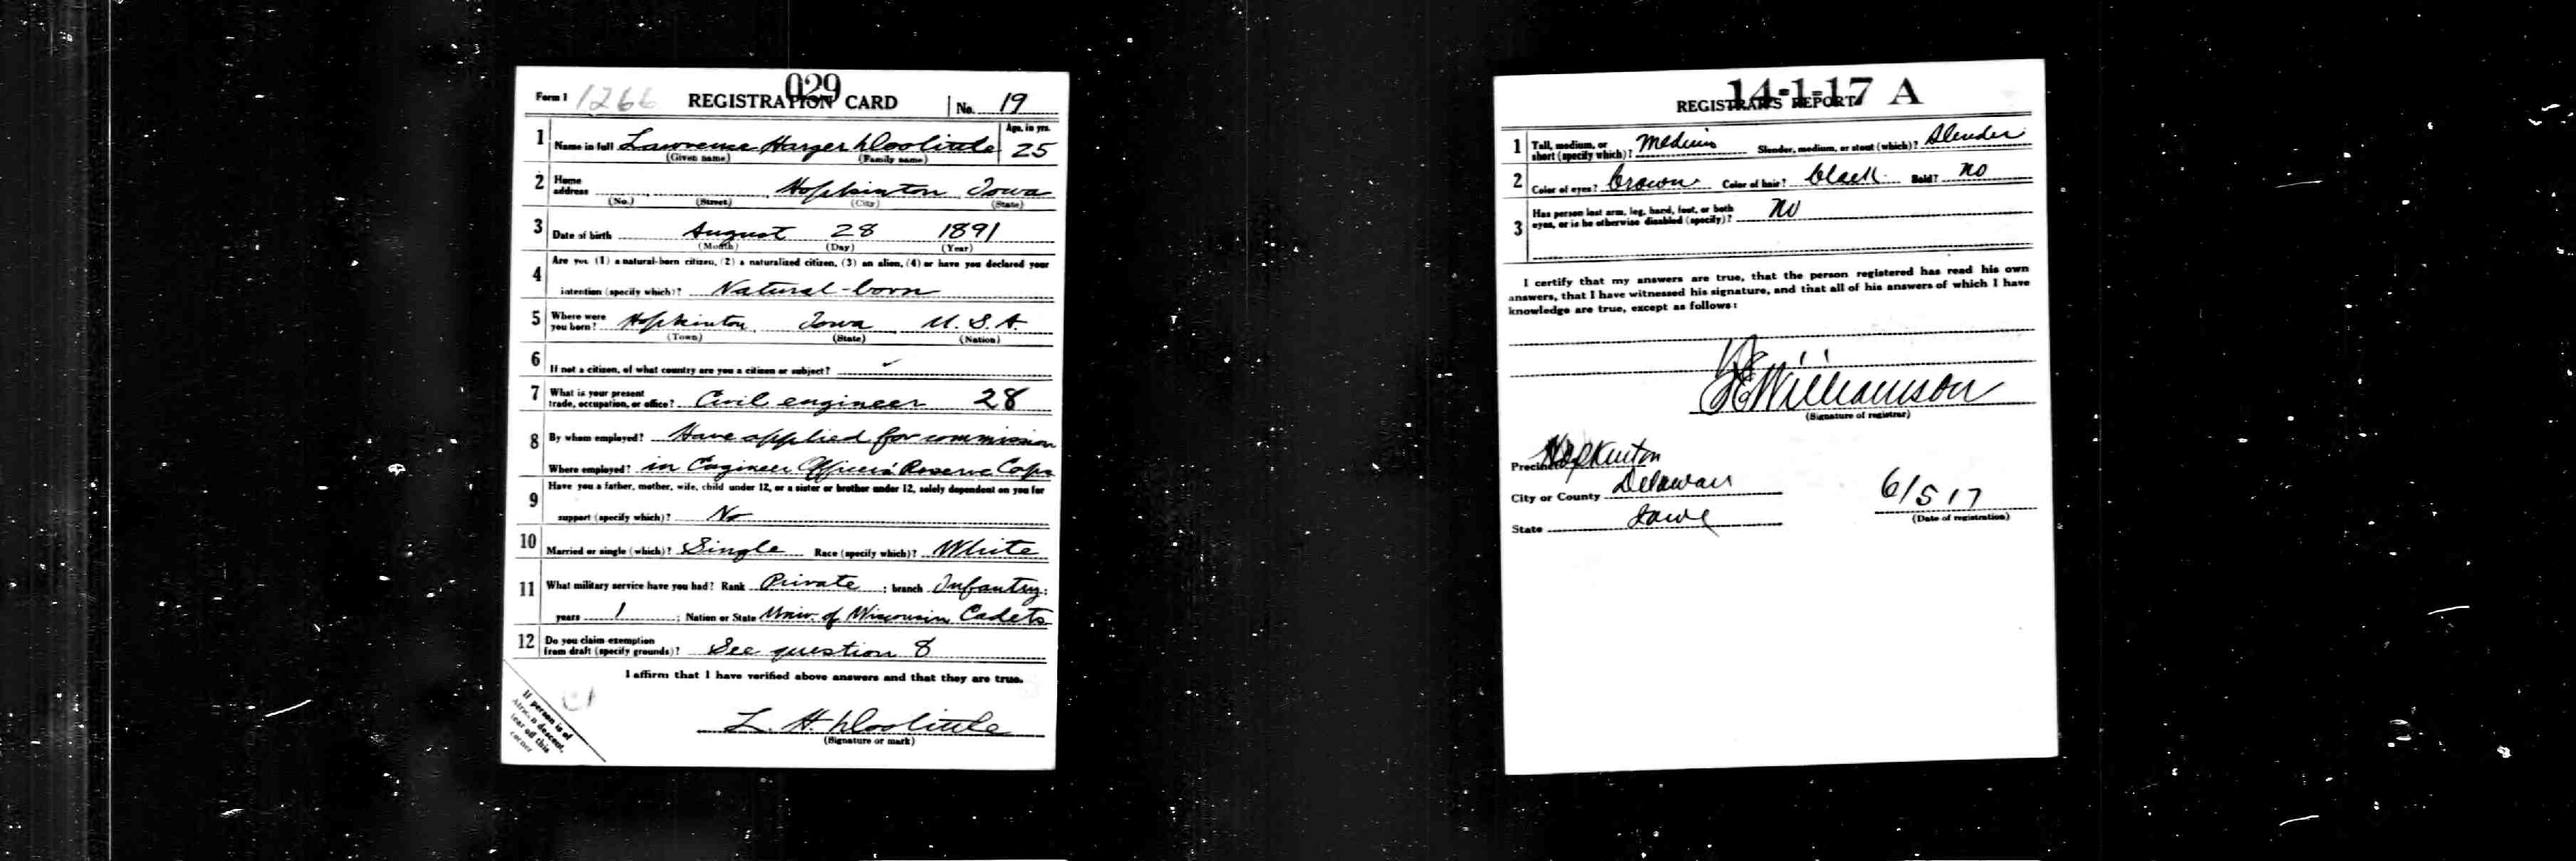 029
Form 1 1266 REGISTRATION CARD No. 19
1 Name in full Lawrence Harger Doolittle Age, in yrs. 25
(Given name) (Family name)
2 Home address Hopkinton Iowa
(No.) (Street) (City) (State)
3 Date of birth August 28 1891
(Month) (Day) (Year)
4 Are you (1) a natural-born citizen, (2) a naturalized citizen, (3) an alien, (4) or have you declared your
intention (specify which)? Natural-born
5 Where were you born? Hopkinton Iowa U.S.A.
(Town) (State) (Nation)
6 If not a citizen, of what country are you a citizen or subject?
7 What is your present trade, occupation, or office? Civil engineer 28
8 By whom employed? Have applied for commission
Where employed? in Engineer Officers' Reserve Corps
9 Have you a father, mother, wife, child under 12, or a sister or brother under 12, solely dependent on you for
support (specify which)? No
10 Married or single (which)? Single Race (specify which)? White
11 What military service have you had? Rank Private ; branch Infantry ;
years 1 ; Nation or State Univ. of Wisconsin Cadets
12 Do you claim exemption from draft (specify grounds)? See question 8
I affirm that I have verified above answers and that they are true.
If person is of
African descent,
tear off this
corner
L. H. Doolittle
(Signature or mark)
14-1-17 A
REGISTRAR'S REPORT
1 Tall, medium, or short (specify which)? Medium Slender, medium, or stout (which)? Slender
2 Color of eyes? brown Color of hair? black Bald? no
3 Has person lost arm, leg, hand, foot, or both eyes, or is he otherwise disabled (specify)? no
I certify that my answers are true, that the person registered has read his own
answers, that I have witnessed his signature, and that all of his answers of which I have
knowledge are true, except as follows:
Williamson
(Signature of registrar)
Precinct Hopkinton
City or County Delaware
State Iowa
6/5 17
(Date of registration)